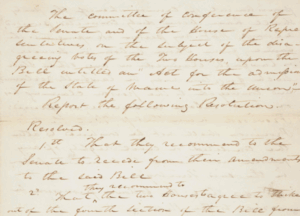 The committee of conference of
the Senate and of the House of Repre
sentatives on the subject of the disa
greeing votes of the two Houses, upon the
Bill entitled an Act for the admission
of the State of Maine into the Union"
Report the following Resolution.
Resolved.
1st That they recommend to the
Senate to recede from their amendments
to the said Bill
they recommend to
2. That the two Houses agree to strike
out of the fourth section of the Bill from